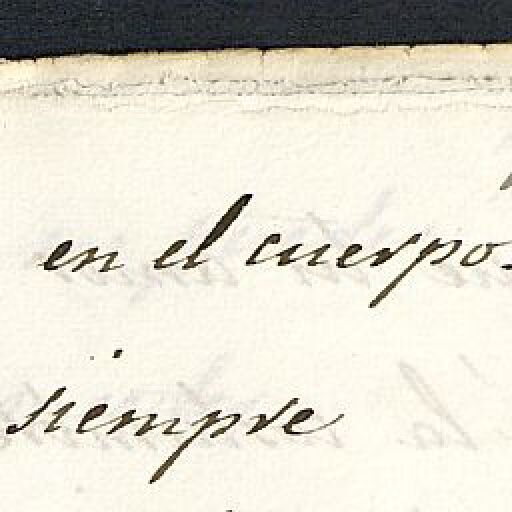 en el cuerpo.
siempre